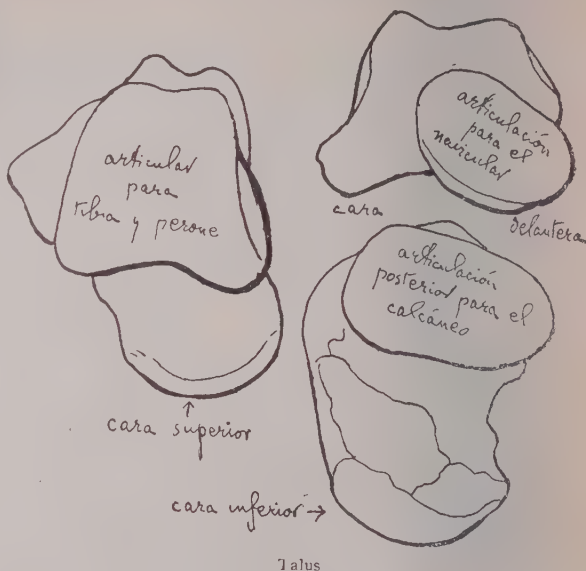 articular
para
tibia y perone
cara superior
articulación
para el
navicular
cara
delantera
articulación
posterior para el
calcáneo
cara inferior →
Talus